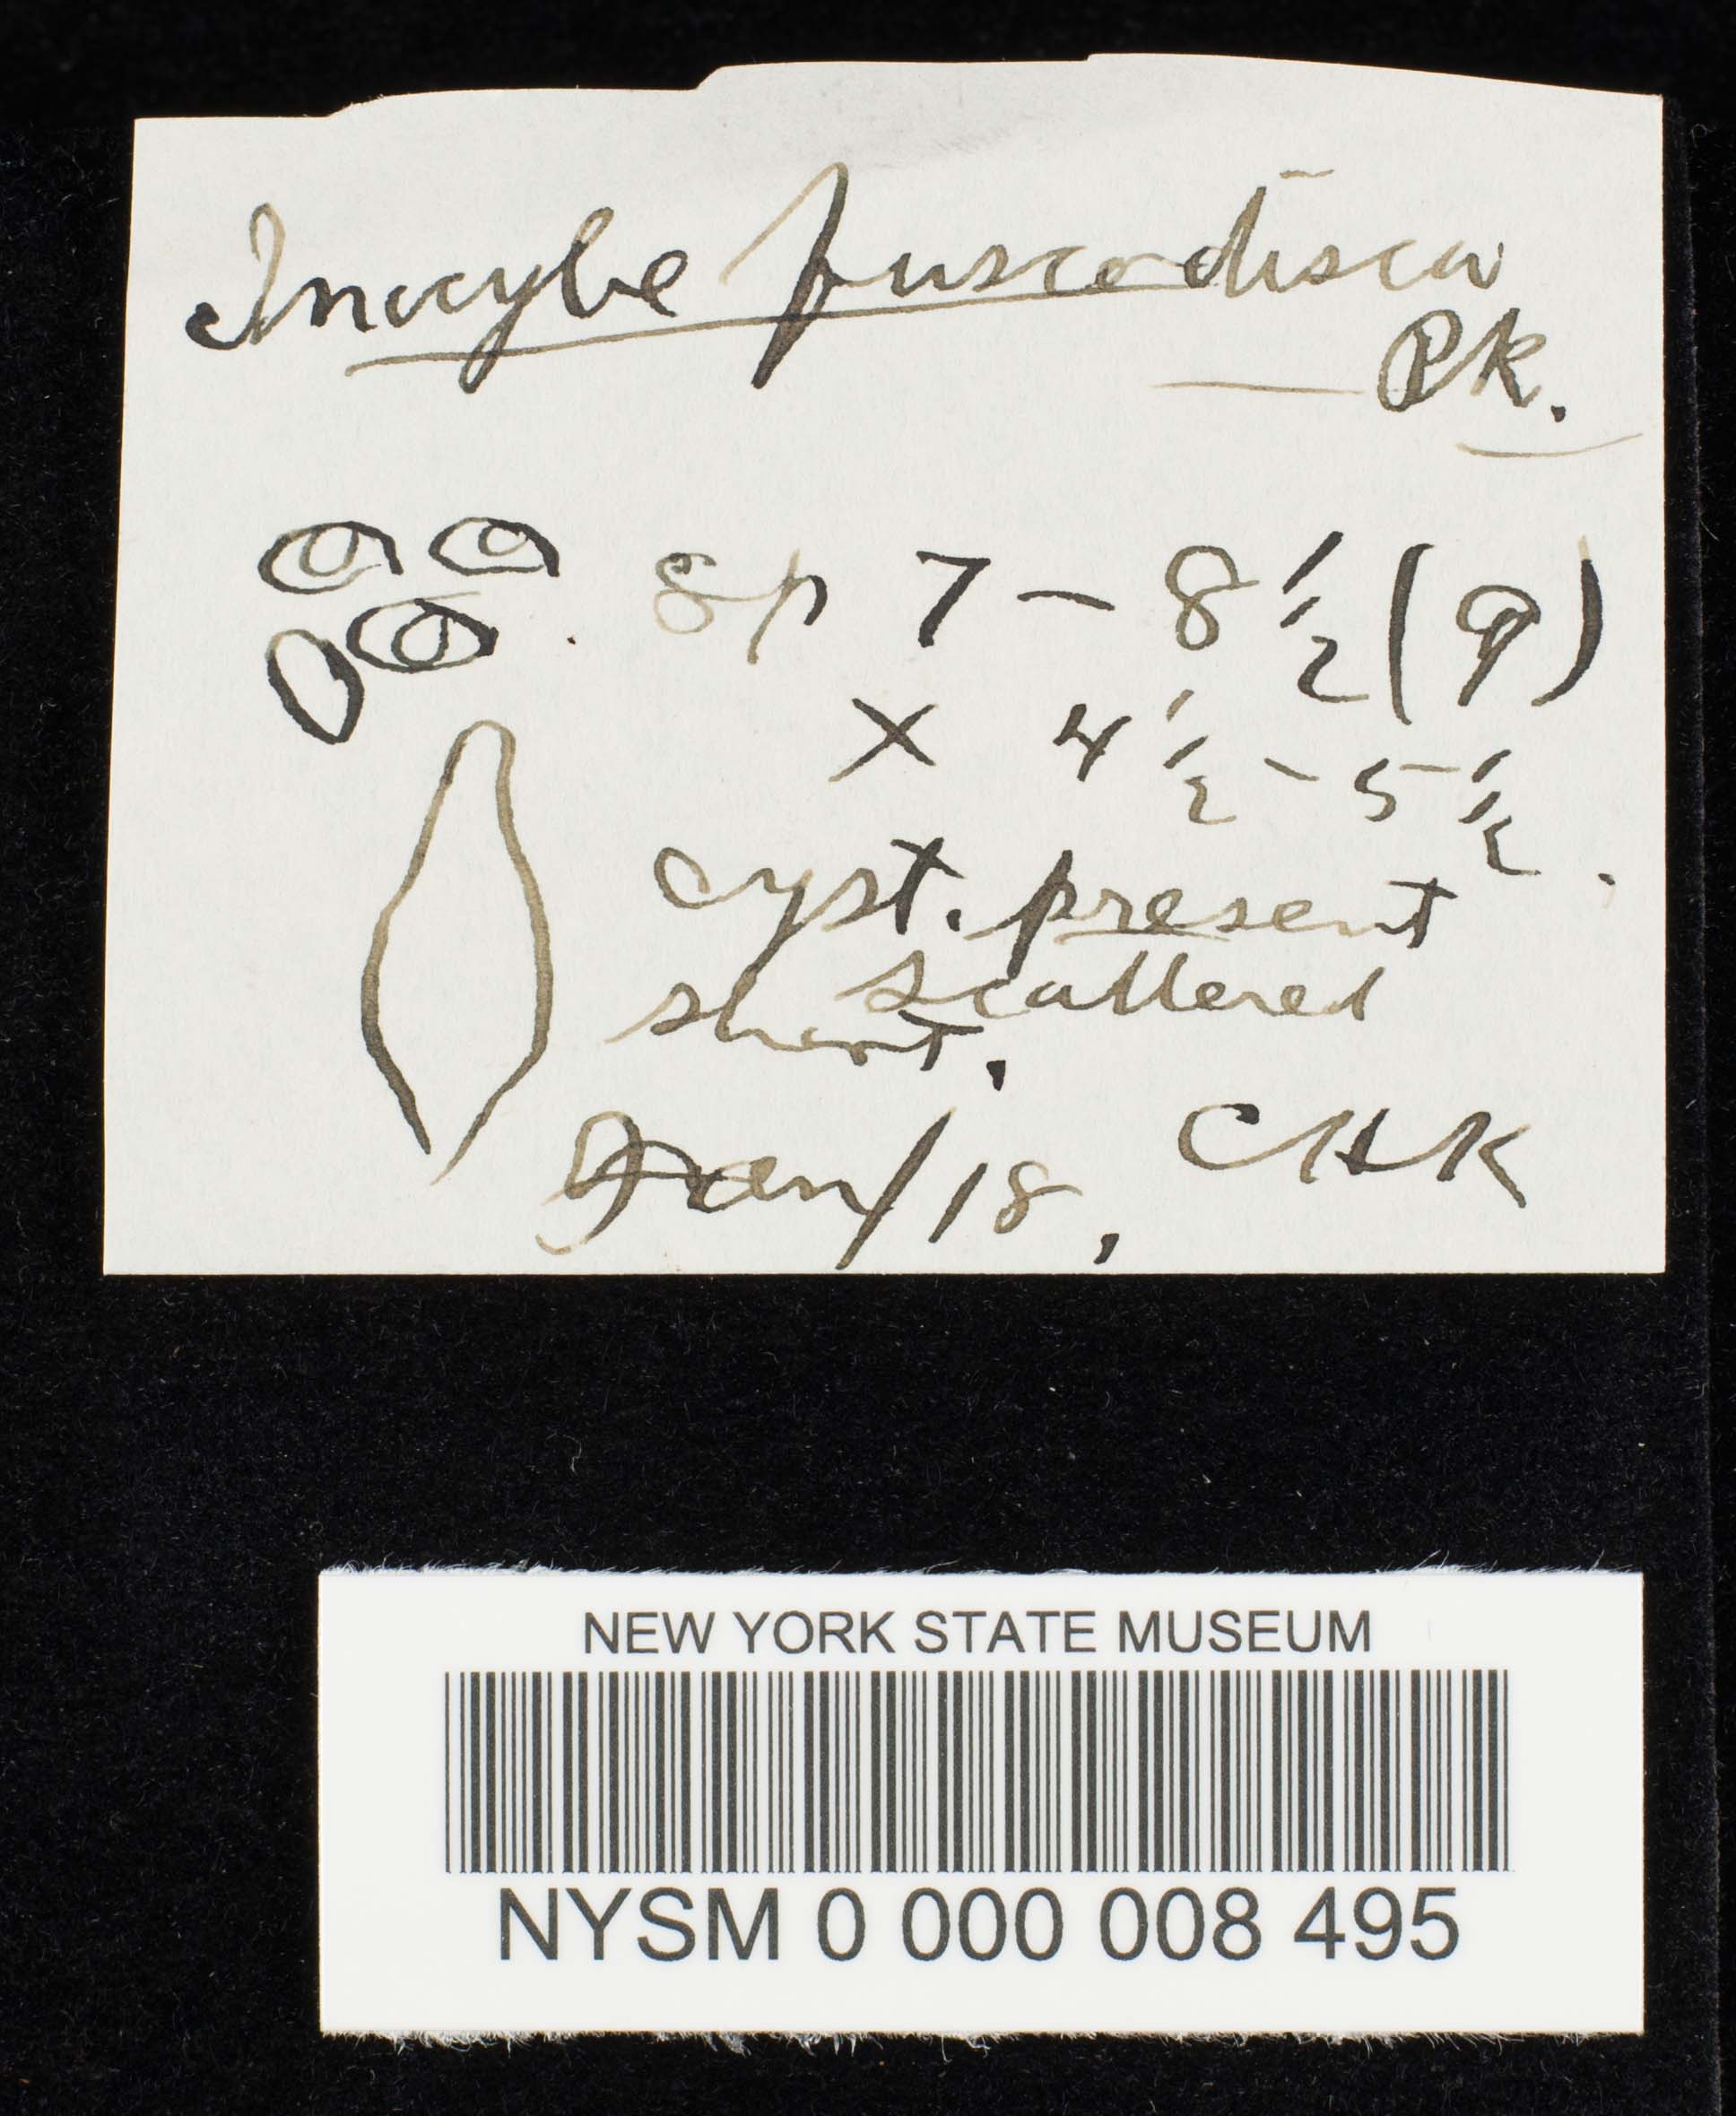 Inocybe fuscodisca
Pk.
sp 7 - 8 1/2 (9)
× 4 1/2 - 5 1/2.
cyst. present
scattered
short.
Jany/18, CHK
NEW YORK STATE MUSEUM
NYSM 0 000 008 495